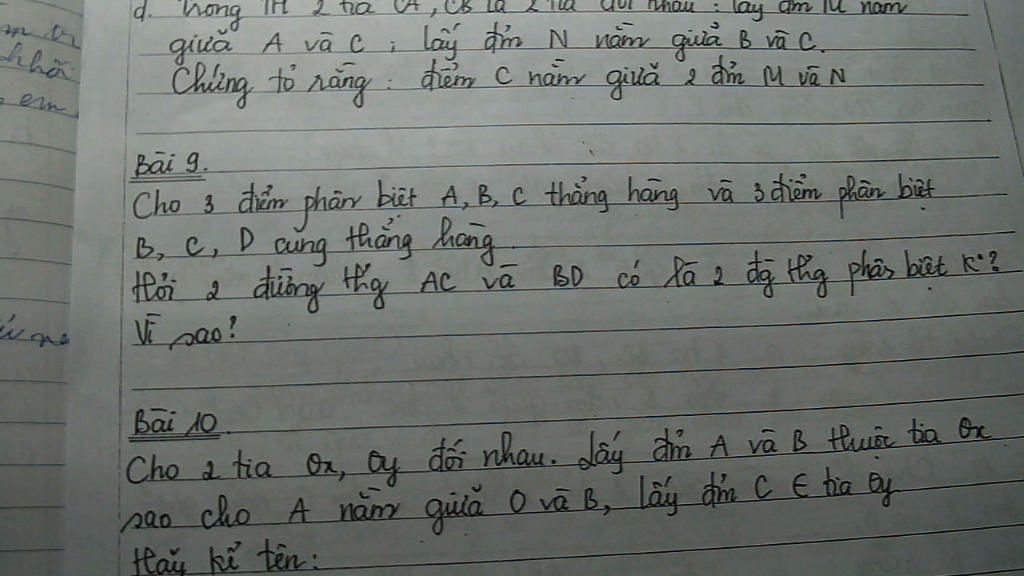 d. Trong TH 2 tia CA, CB là 2 tia đối nhau: lấy đm M nằm
giữa A và C; lấy đm N nằm giữa B và C.
Chứng tỏ rằng: điểm C nằm giữa 2 đm M và N
Bài 9.
Cho 3 điểm phân biệt A, B, C thẳng hàng và 3 điểm phân biệt
B, C, D cũng thẳng hàng
Hỏi 2 đường thg AC và BD có là 2 đg thg phân biệt K°?
Vì sao?
Bài 10
Cho 2 tia Ox, Oy đối nhau. Lấy đm A và B thuộc tia Ox
sao cho A nằm giữa O và B, lấy đm C ∈ tia Oy
Hãy kể tên:
em